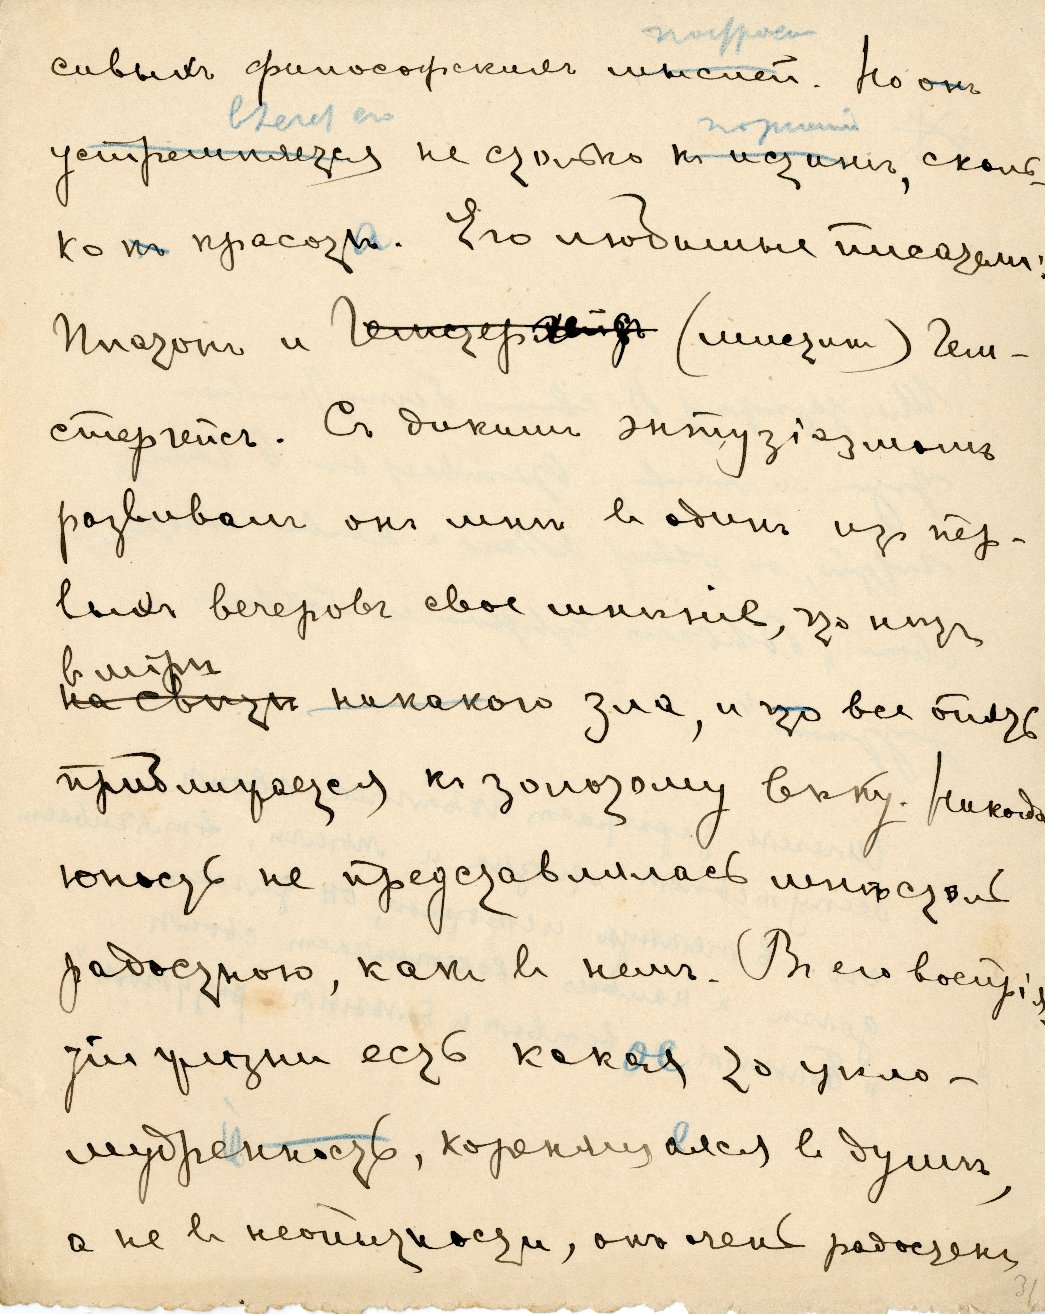 построен
сивыхъ философскихъ мыслей. Но онъ
влечет его
порыв
устремляется не столько къ истинѣ, сколь-
ко къ красотѣ. Его любимые писатели:
Платонъ и Гемстергейсъ (мистик) Гем-
стергейсъ. Съ дикимъ энтузіазмомъ
развивалъ онъ мнѣ въ одинъ изъ пер-
выхъ вечеровъ свое мнѣніе, что нѣтъ
в мірѣ
на свѣтѣ никакого зла, и что все опять
приближается къ золотому вѣку. Никогда
юность не представлялась мнѣ столь
радостною, какъ въ немъ. Въ его воспрія-
тіи жизни есть какая то цѣло-
мудренность, коренящаяся въ душѣ,
а не въ неопытности, онъ очень радостенъ
31